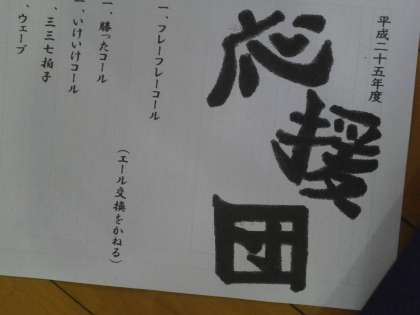 平成二十五年度
応援団
一、フレーフレーコール
(エール交換をかねる)
一、勝ったコール
一、いけいけコール
、三三七拍子
、ウェーブ